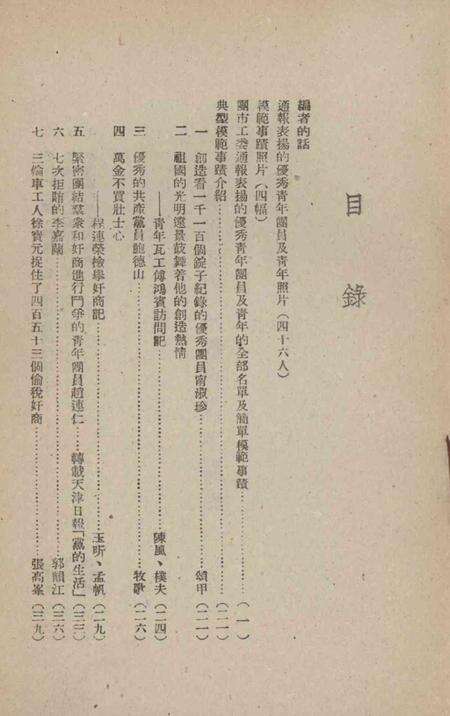 目錄
編者的話
通報表揚的優秀青年團員及青年照片(四十六人)
模範事蹟照片(四幅)
團市工委通報表揚的優秀青年團員及青年的全部名單及簡單模範事蹟……(一)
典型模範事蹟介紹……(二一)
一 創造看一千一百個錠子紀錄的優秀團員甯淑珍……頌甲(二一)
二 祖國的光明遠景鼓舞着他的創造熱情
——青年瓦工傅鴻賓訪問記……陳風、樸夫(二四)
三 優秀的共產黨員鮑德山……牧歌(二六)
四 萬金不買壯士心
——程連榮檢舉奸商記……玉昕、孟帆(二九)
五 緊密團結羣衆和奸商進行鬥爭的青年團員趙連仁……轉載天津日報「黨的生活」(三三)
六 七次拒賄的李嘉蘭……郭韻江(三六)
七 三輪車工人徐寶元捉住了四百五十三個偷稅奸商……張高峯(三九)